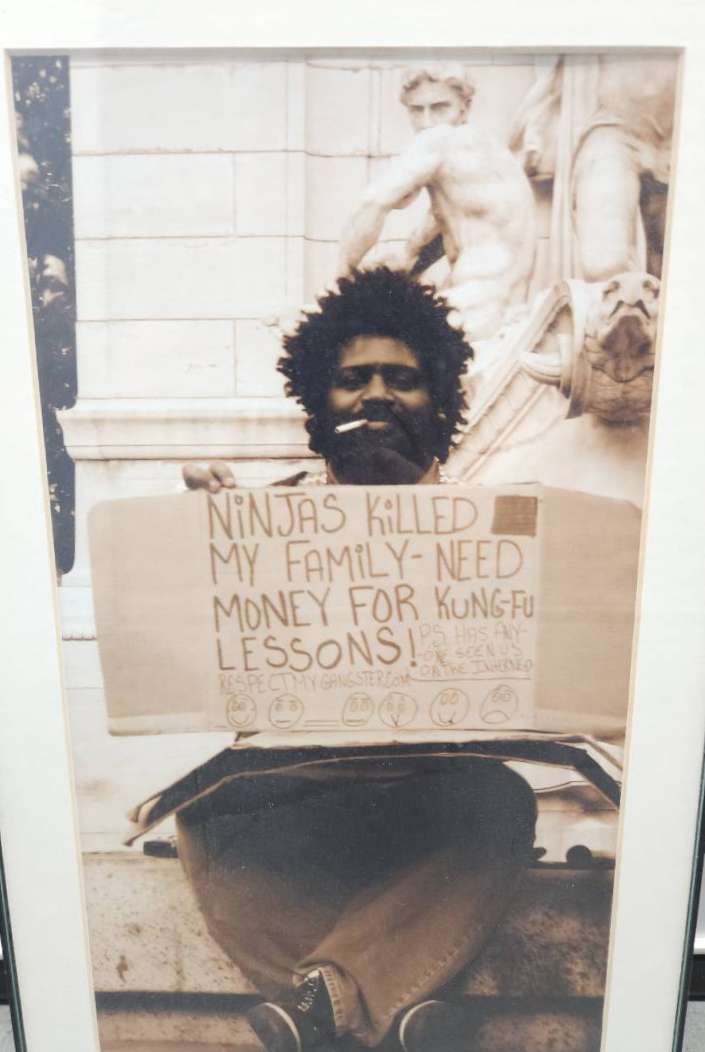 NiNJAS KiLLED
MY FAMiLY- NEED
MONEY FOR KUNG-FU
LESSONS!
PS HAS ANY-
ONE SEEN US
ON THE INTERNET
RESPECTMYGANGSTER.COM